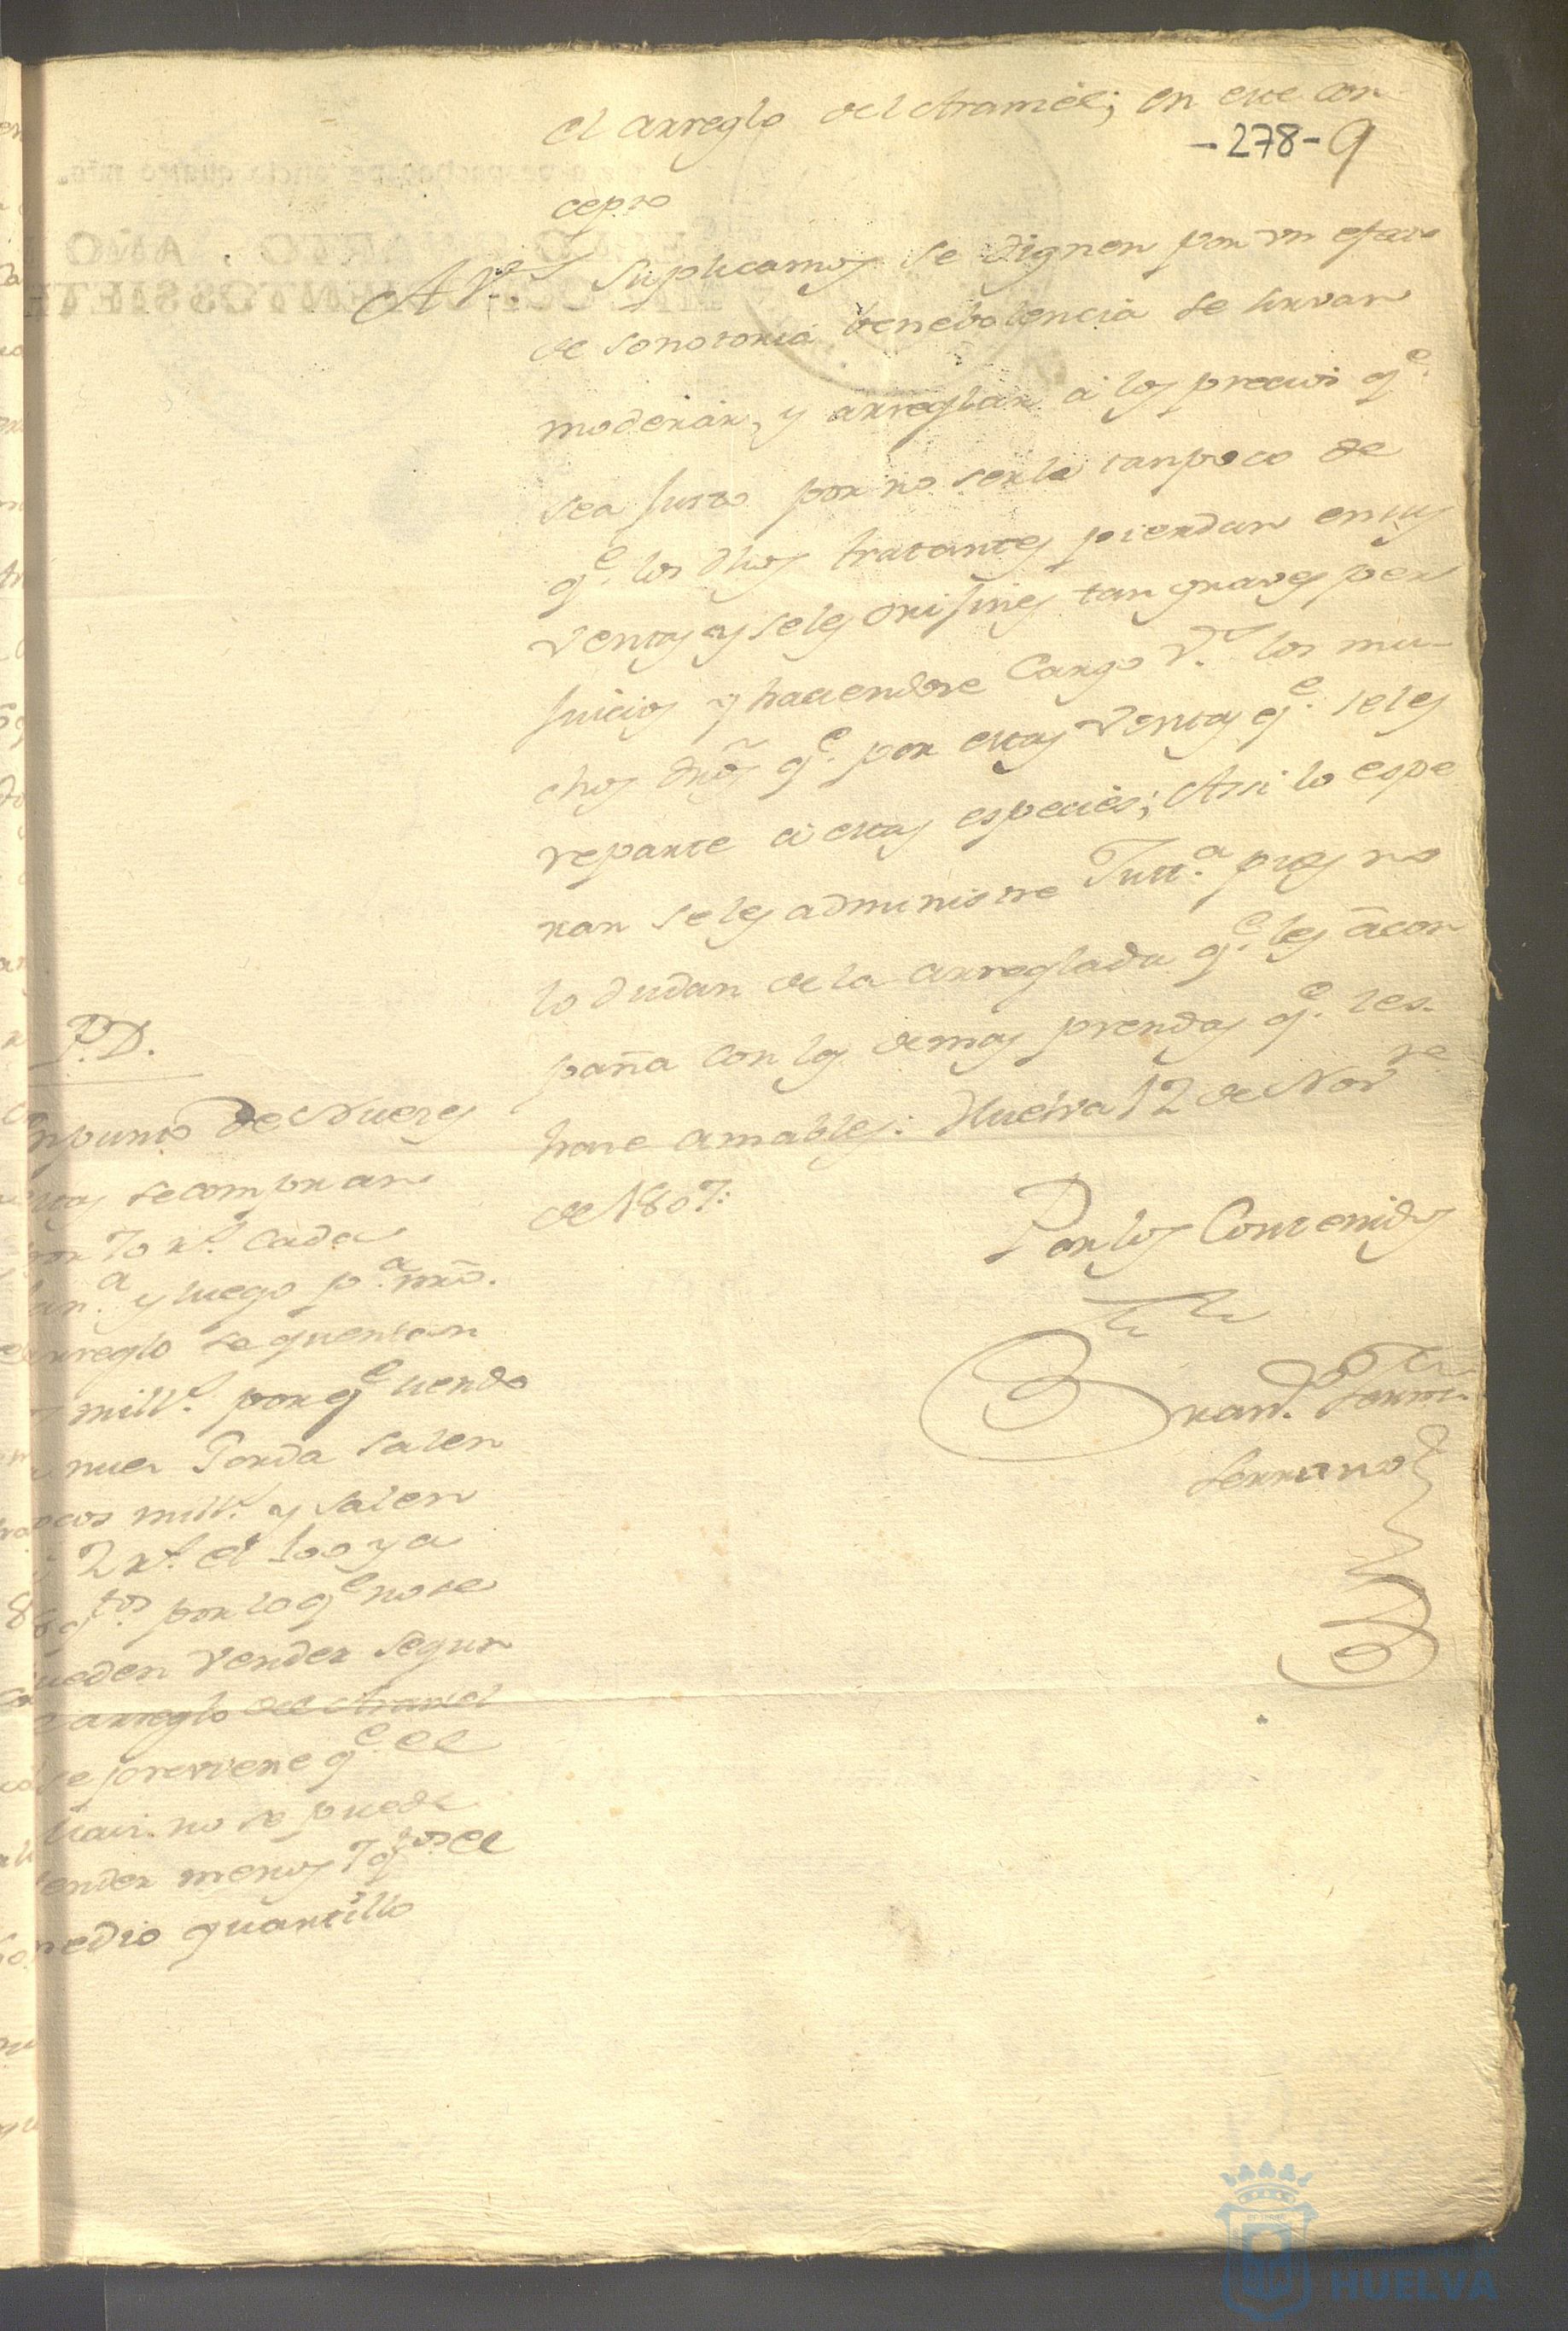 el arreglo del Arancel; en este con
-278- 9
cepto
A V.s Suplicamos se dignen por un efecto
de su notoria benebolencia se sirvan
moderar, y arreglar á los precios q.e
sea justo por no serlo tanpoco de
q.e los dhos tratantes pierdan en sus
ventas y se les orijines tan graves per
juicios y haciendose Cargo V.s los mu-
chos dros q.e por estas ventas q.e se les
reparte á estas especies; Assi lo espe
ran se les administre Just.a pues no
lo dudan de la arreglada q.e les acom
paña con las demas prendas q.e les
hace amables: Huelva 12 de Nov.re
de 1807:
Por los Contenidos
Fran.co
Serrano
P.D.
punto de Nueces
se compran
por 70 r.s cada
y luego p.a
arreglo se quentan
mill.s por q.e siendo
nuez Gorda salen
pocos mill.s y salen
2 r.s el 100 y a
q.tos por lo q.e no se
pueden vender segun
arreglo del Arancel
se previene q.e el
no se puede
vender menos 7 q.tos el
medio quartillo
HUELVA